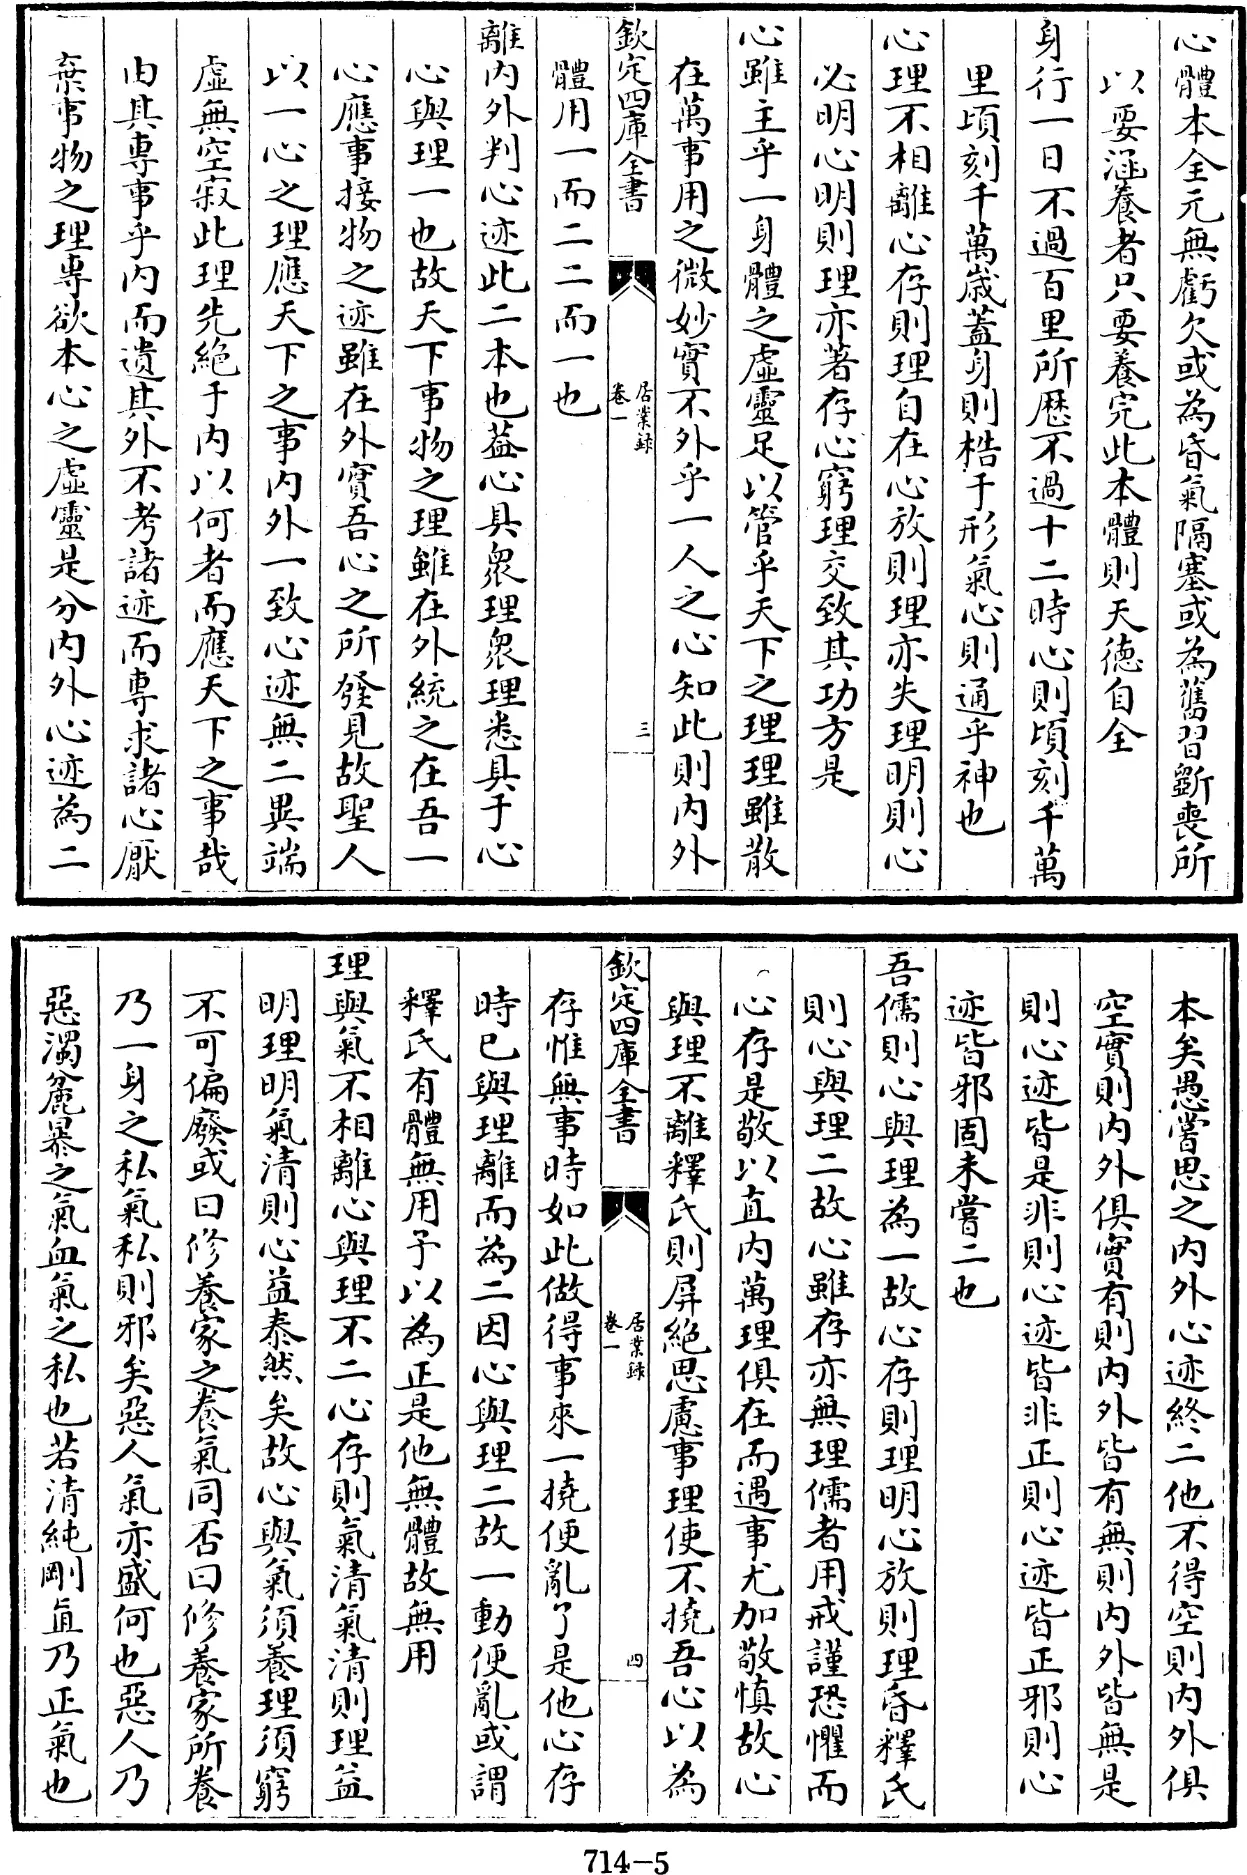 心體本全元無虧欠或為昏氣隔塞或為舊習斵喪所
以要涵養者只要養完此本體則天德自全
身行一日不過百里所歴不過十二時心則頃刻千萬
里頃刻千萬歲蓋身則梏于形氣心則通乎神也
心理不相離心存則理自在心放則理亦失理明則心
必明心明則理亦著存心窮理交致其功方是
心雖主乎一身體之虛靈足以管乎天下之理理雖散
在萬事用之微妙實不外乎一人之心知此則内外
欽定四庫全書
居業録
卷一
三
體用一而二二而一也
離内外判心迹此二本也葢心具衆理衆理悉具于心
心與理一也故天下事物之理雖在外統之在吾一
心應事接物之迹雖在外實吾心之所發見故聖人
以一心之理應天下之事内外一致心迹無二異端
虛無空寂此理先絶于内以何者而應天下之事哉
由其專事乎内而遺其外不考諸迹而專求諸心厭
棄事物之理專欲本心之虛靈是分内外心迹為二
本矣愚嘗思之内外心迹終二他不得空則内外俱
空實則内外俱實有則内外皆有無則内外皆無是
則心迹皆是非則心迹皆非正則心迹皆正邪則心
迹皆邪固未嘗二也
吾儒則心與理為一故心存則理明心放則理昏釋氏
則心與理二故心雖存亦無理儒者用戒謹恐懼而
心存是敬以直内萬理俱在而遇事尤加敬慎故心
與理不離釋氏則屏絶思慮事理使不撓吾心以為
欽定四庫全書
居業録
卷一
四
存惟無事時如此做得事來一撓便亂了是他心存
時已與理離而為二因心與理二故一動便亂或謂
釋氏有體無用予以為正是他無體故無用
理與氣不相離心與理不二心存則氣清氣清則理益
明理明氣清則心益泰然矣故心與氣須養理須窮
不可偏廢或曰修養家之養氣同否曰修養家所養
乃一身之私氣私則邪矣惡人氣亦盛何也惡人乃
惡濁麄暴之氣血氣之私也若清純剛直乃正氣也
714-5